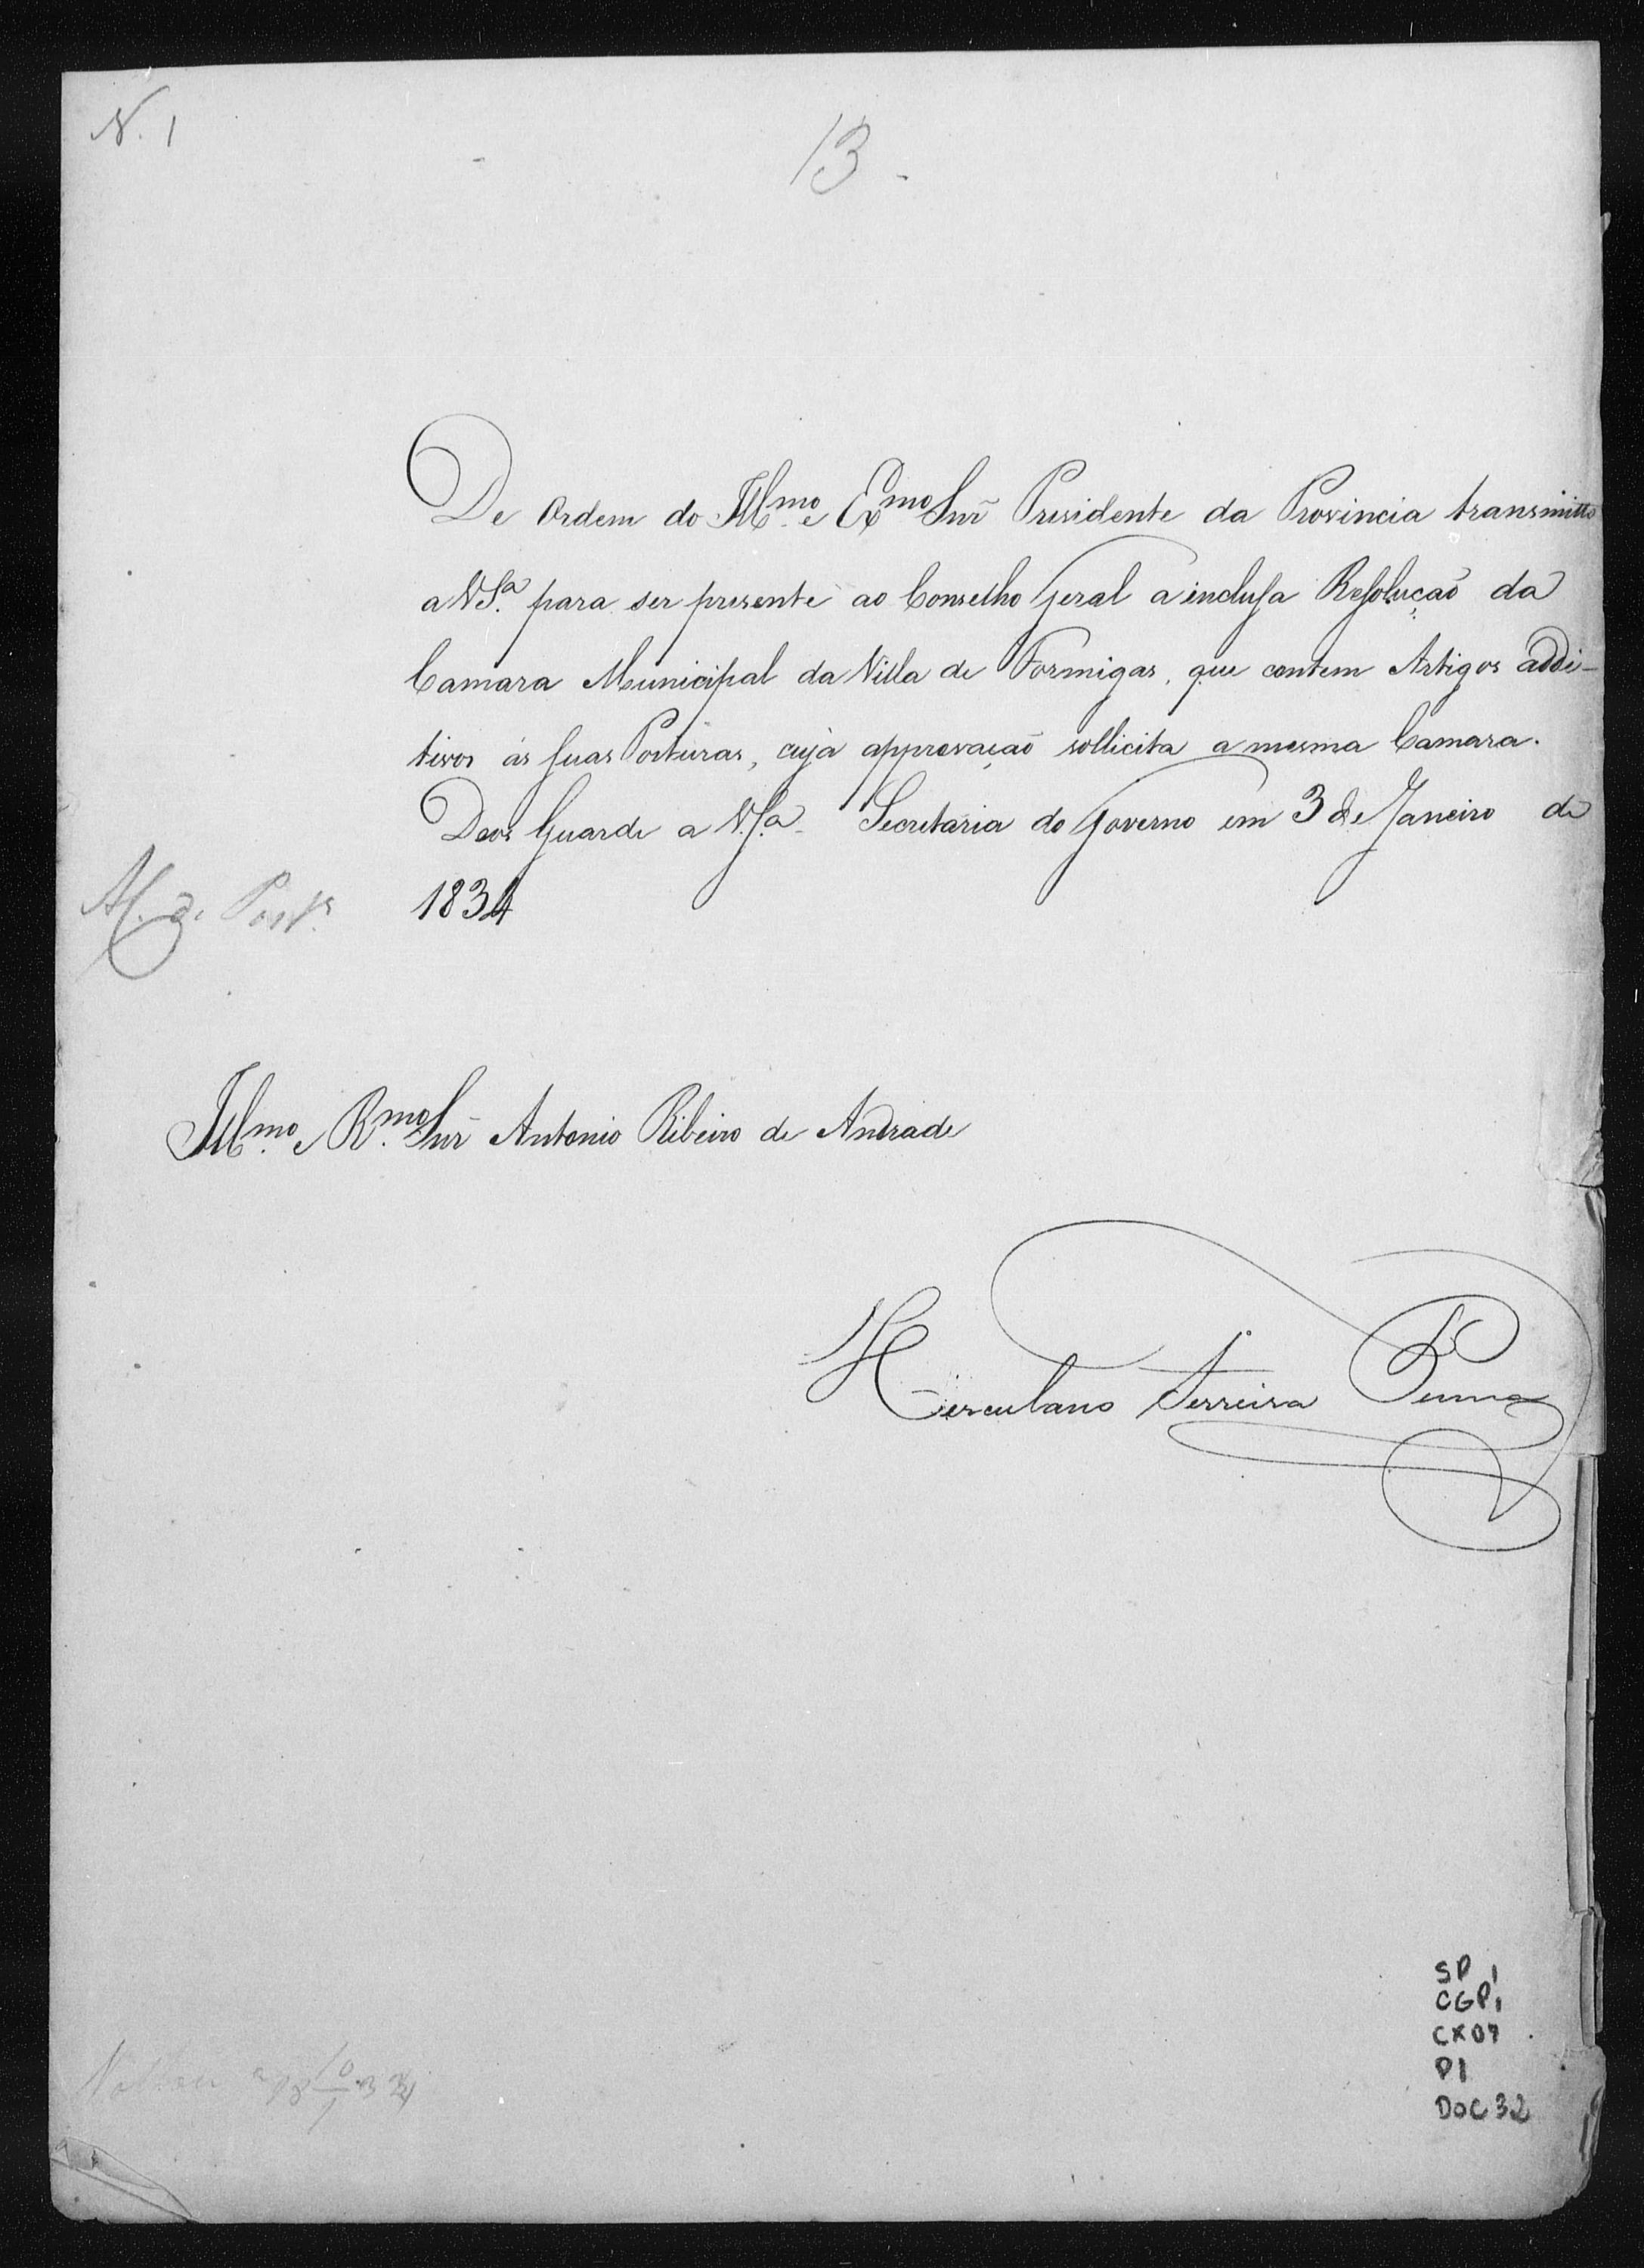 N. 1
13
De Ordem do Illmo. e Exmo Snr̃ Presidente da Provincia transmitto
a V Sa. para ser presente ao Conselho Geral a inclusa Resolução da
Camara Municipal da Villa de Formigas, que contem Artigos addi-
tivos ás suas Posturas, cuja approvação sollicita a mesma Camara.
Deos Guarde a V. Sa. Secretaria do Governo em 3 de Janeiro de
1834
Illmo. e Rmo. Snr̃ Antonio Ribeiro de Andrade
Herculano Ferreira Penna
SP 1
CGP 1
CX 07
P1
DOC 32